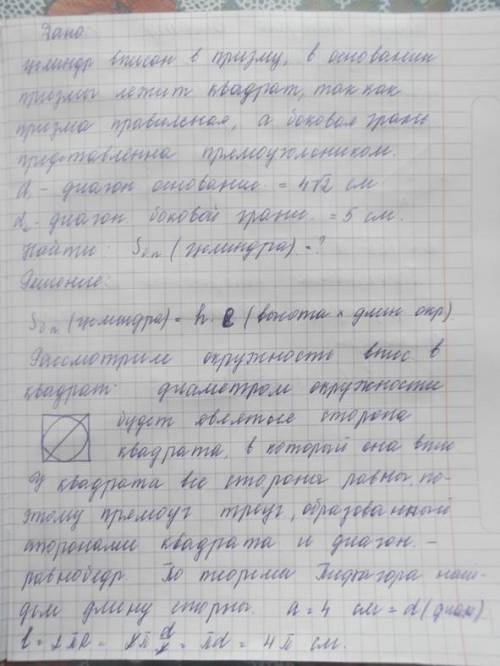 Дано:
цилиндр вписан в призму, в основании
призмы лежит квадрат, так как
призма правильная, а боковая грань
представленна прямоугольником.
d₁ - диагон основание = 4√2 см
d₂ - диагон. боковой грани. = 5 см.
Найти: Sбп (цилиндра) = ?
Решение:
Sбп (цилиндра) = h · l (высота × длин окр).
Рассмотрим окружность впис в
квадрат: диаметром окружности
будет являться сторона
квадрата, в который она впис
У квадрата все сторона равны, по-
этому прямоуг треуг, образованный
сторонами квадрата и диагон. -
равнобедр. По теорема Пифагора най-
дем длину стороны. a = 4 см = d (диам)
l = 2πR = 2π d/2 = πd = 4π см.